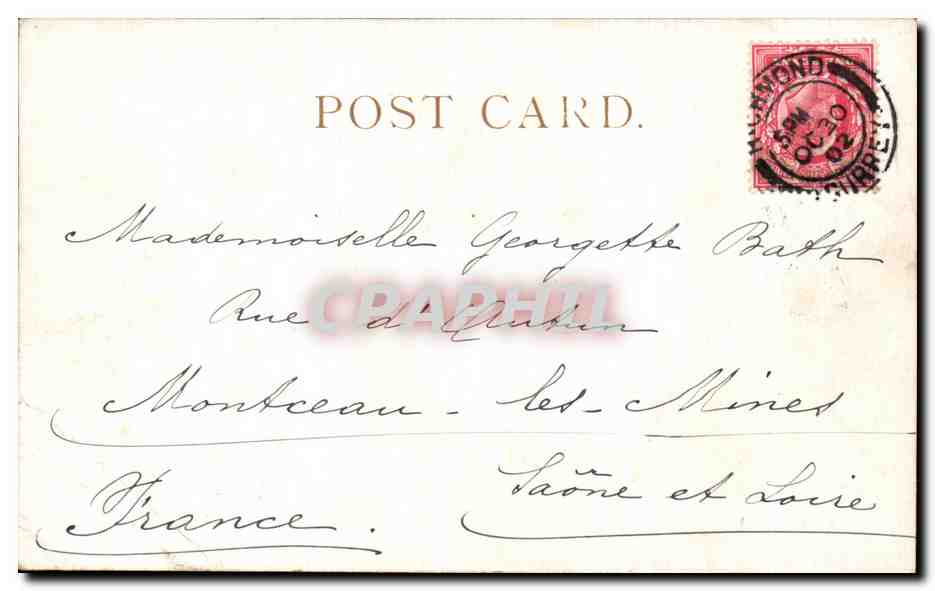 POST CARD.
RICHMOND
5 PM
OC 30
02
SURREY
Mademoiselle Georgette Bath
Rue d'Autun
CPAPHIL
Montceau-les-Mines
Saône et Loire
France.